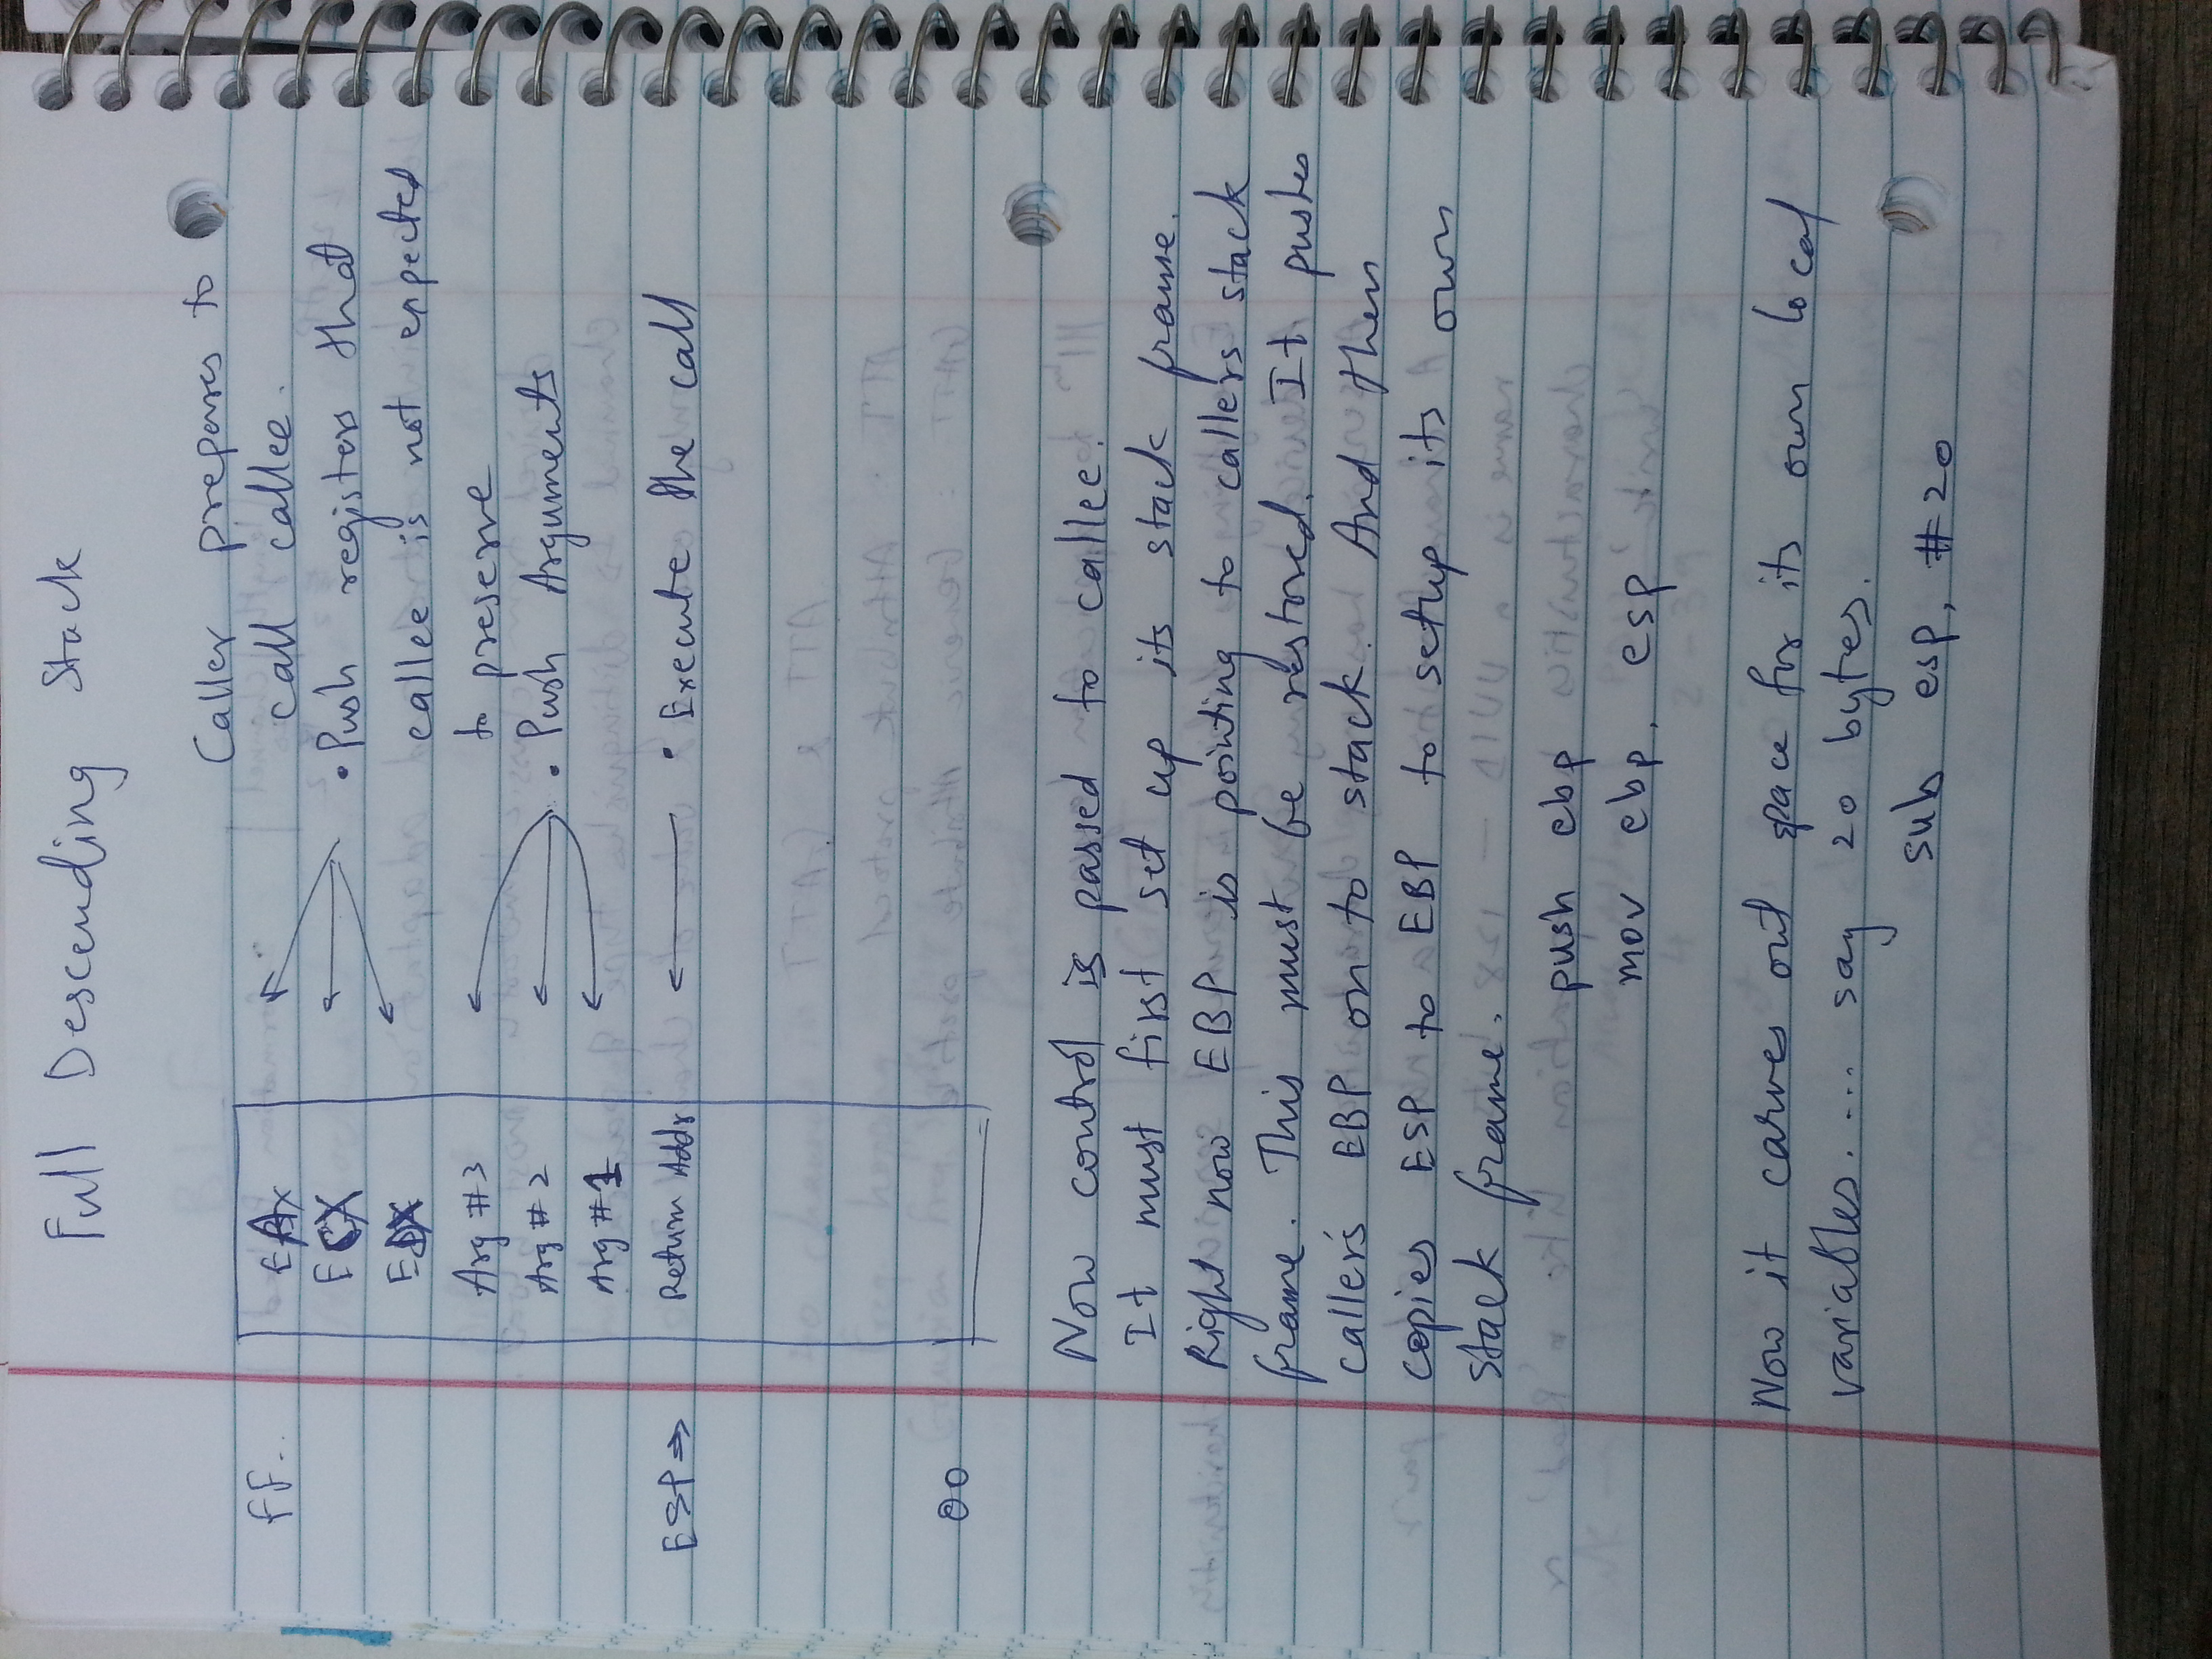 Full Descending Stack
Caller prepares to
FF.. EAX call callee.
ECX • Push registers that
EDX callee is not expected
Arg #3 to preserve
Arg #2 • Push Arguments
Arg #1
ESP → Return Addr • Execute the call
00
Now control is passed to callee.
It must first set up its stack frame.
Right now EBP is pointing to callers stack
frame. This must be restored. It pushes
caller's EBP on to stack. And then
copies ESP to EBP to setup its own
stack frame.
push ebp
mov ebp, esp
Now it carves out space for its own local
variables. ... say 20 bytes.
sub esp, #20